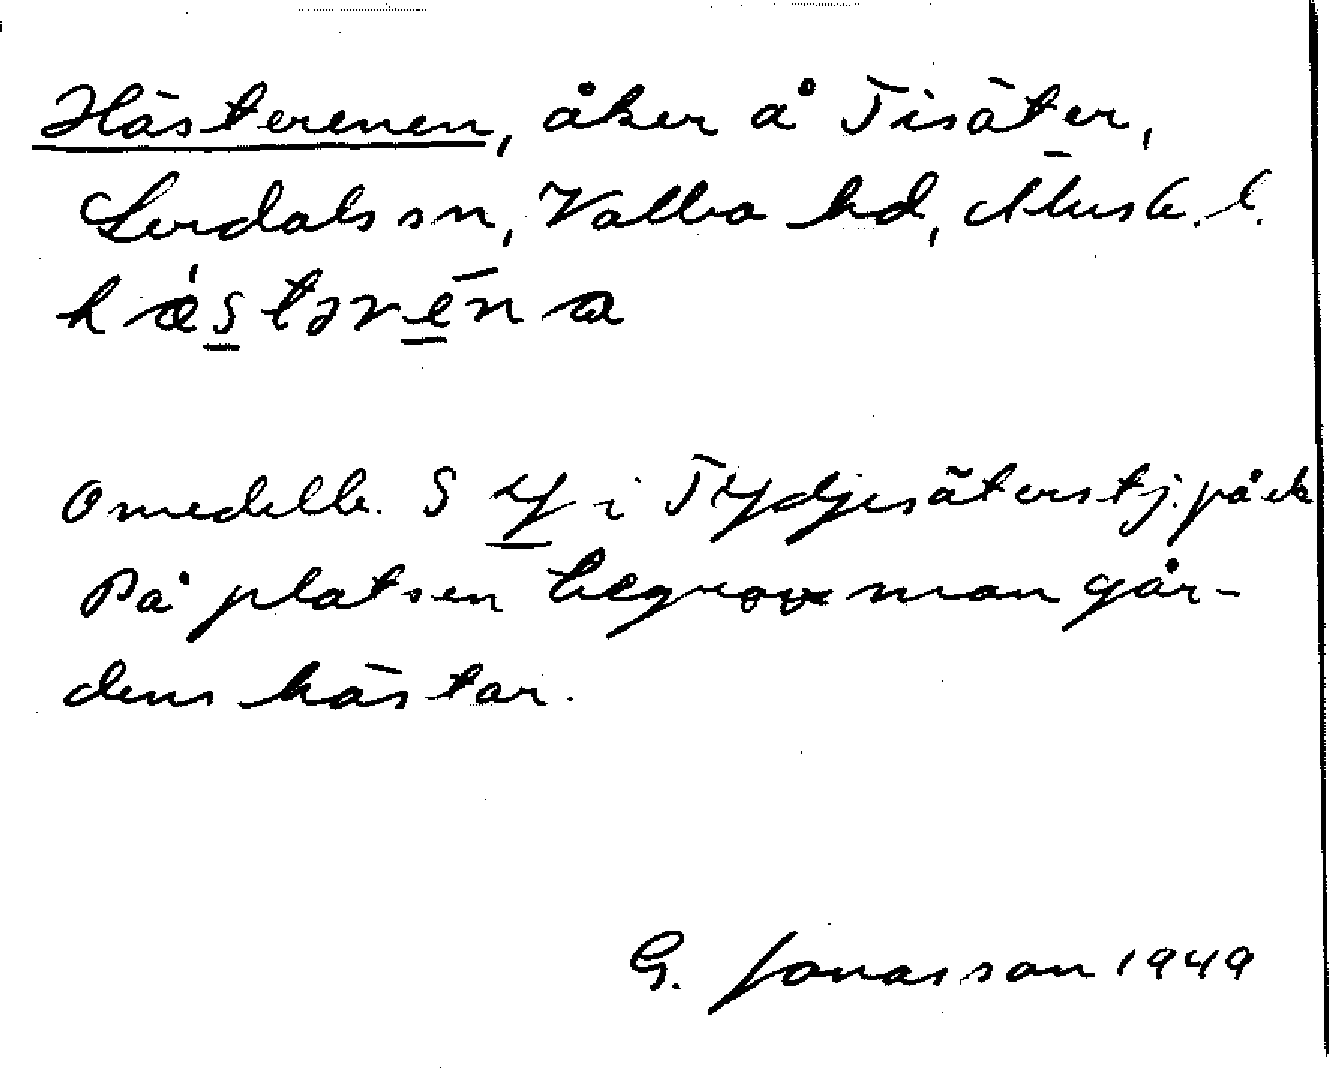 Hästerenen, åker å Tisäter,
Lerdals sn, Valbo hd, Älvsb. l.
hǽstərēna
Omedelb. S y i Tydjesäterstj. på ek
På platsen begrov man går-
dens hästar.
G. Jonasson 1949